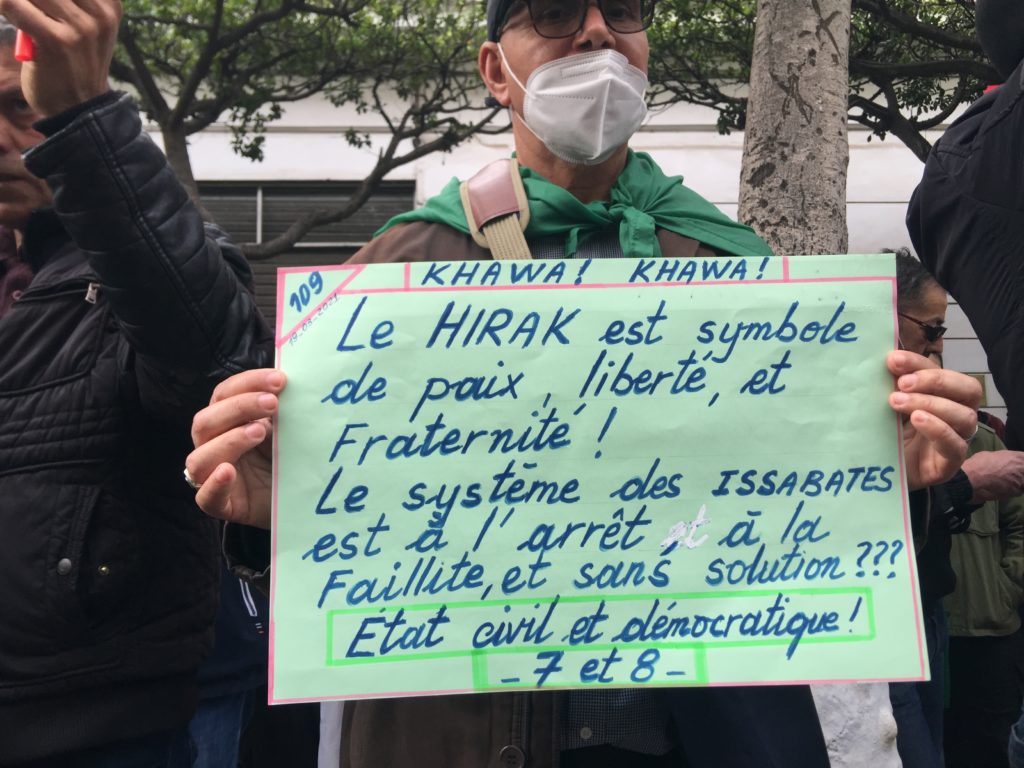 109
19_03_2021
KHAWA! KHAWA!
Le HIRAK est symbole
de paix, liberté, et
Fraternité !
Le système des ISSABATES
est à l'arrêt, à la
Faillite, et sans solution ???
État civil et démocratique !
_ 7 et 8 _